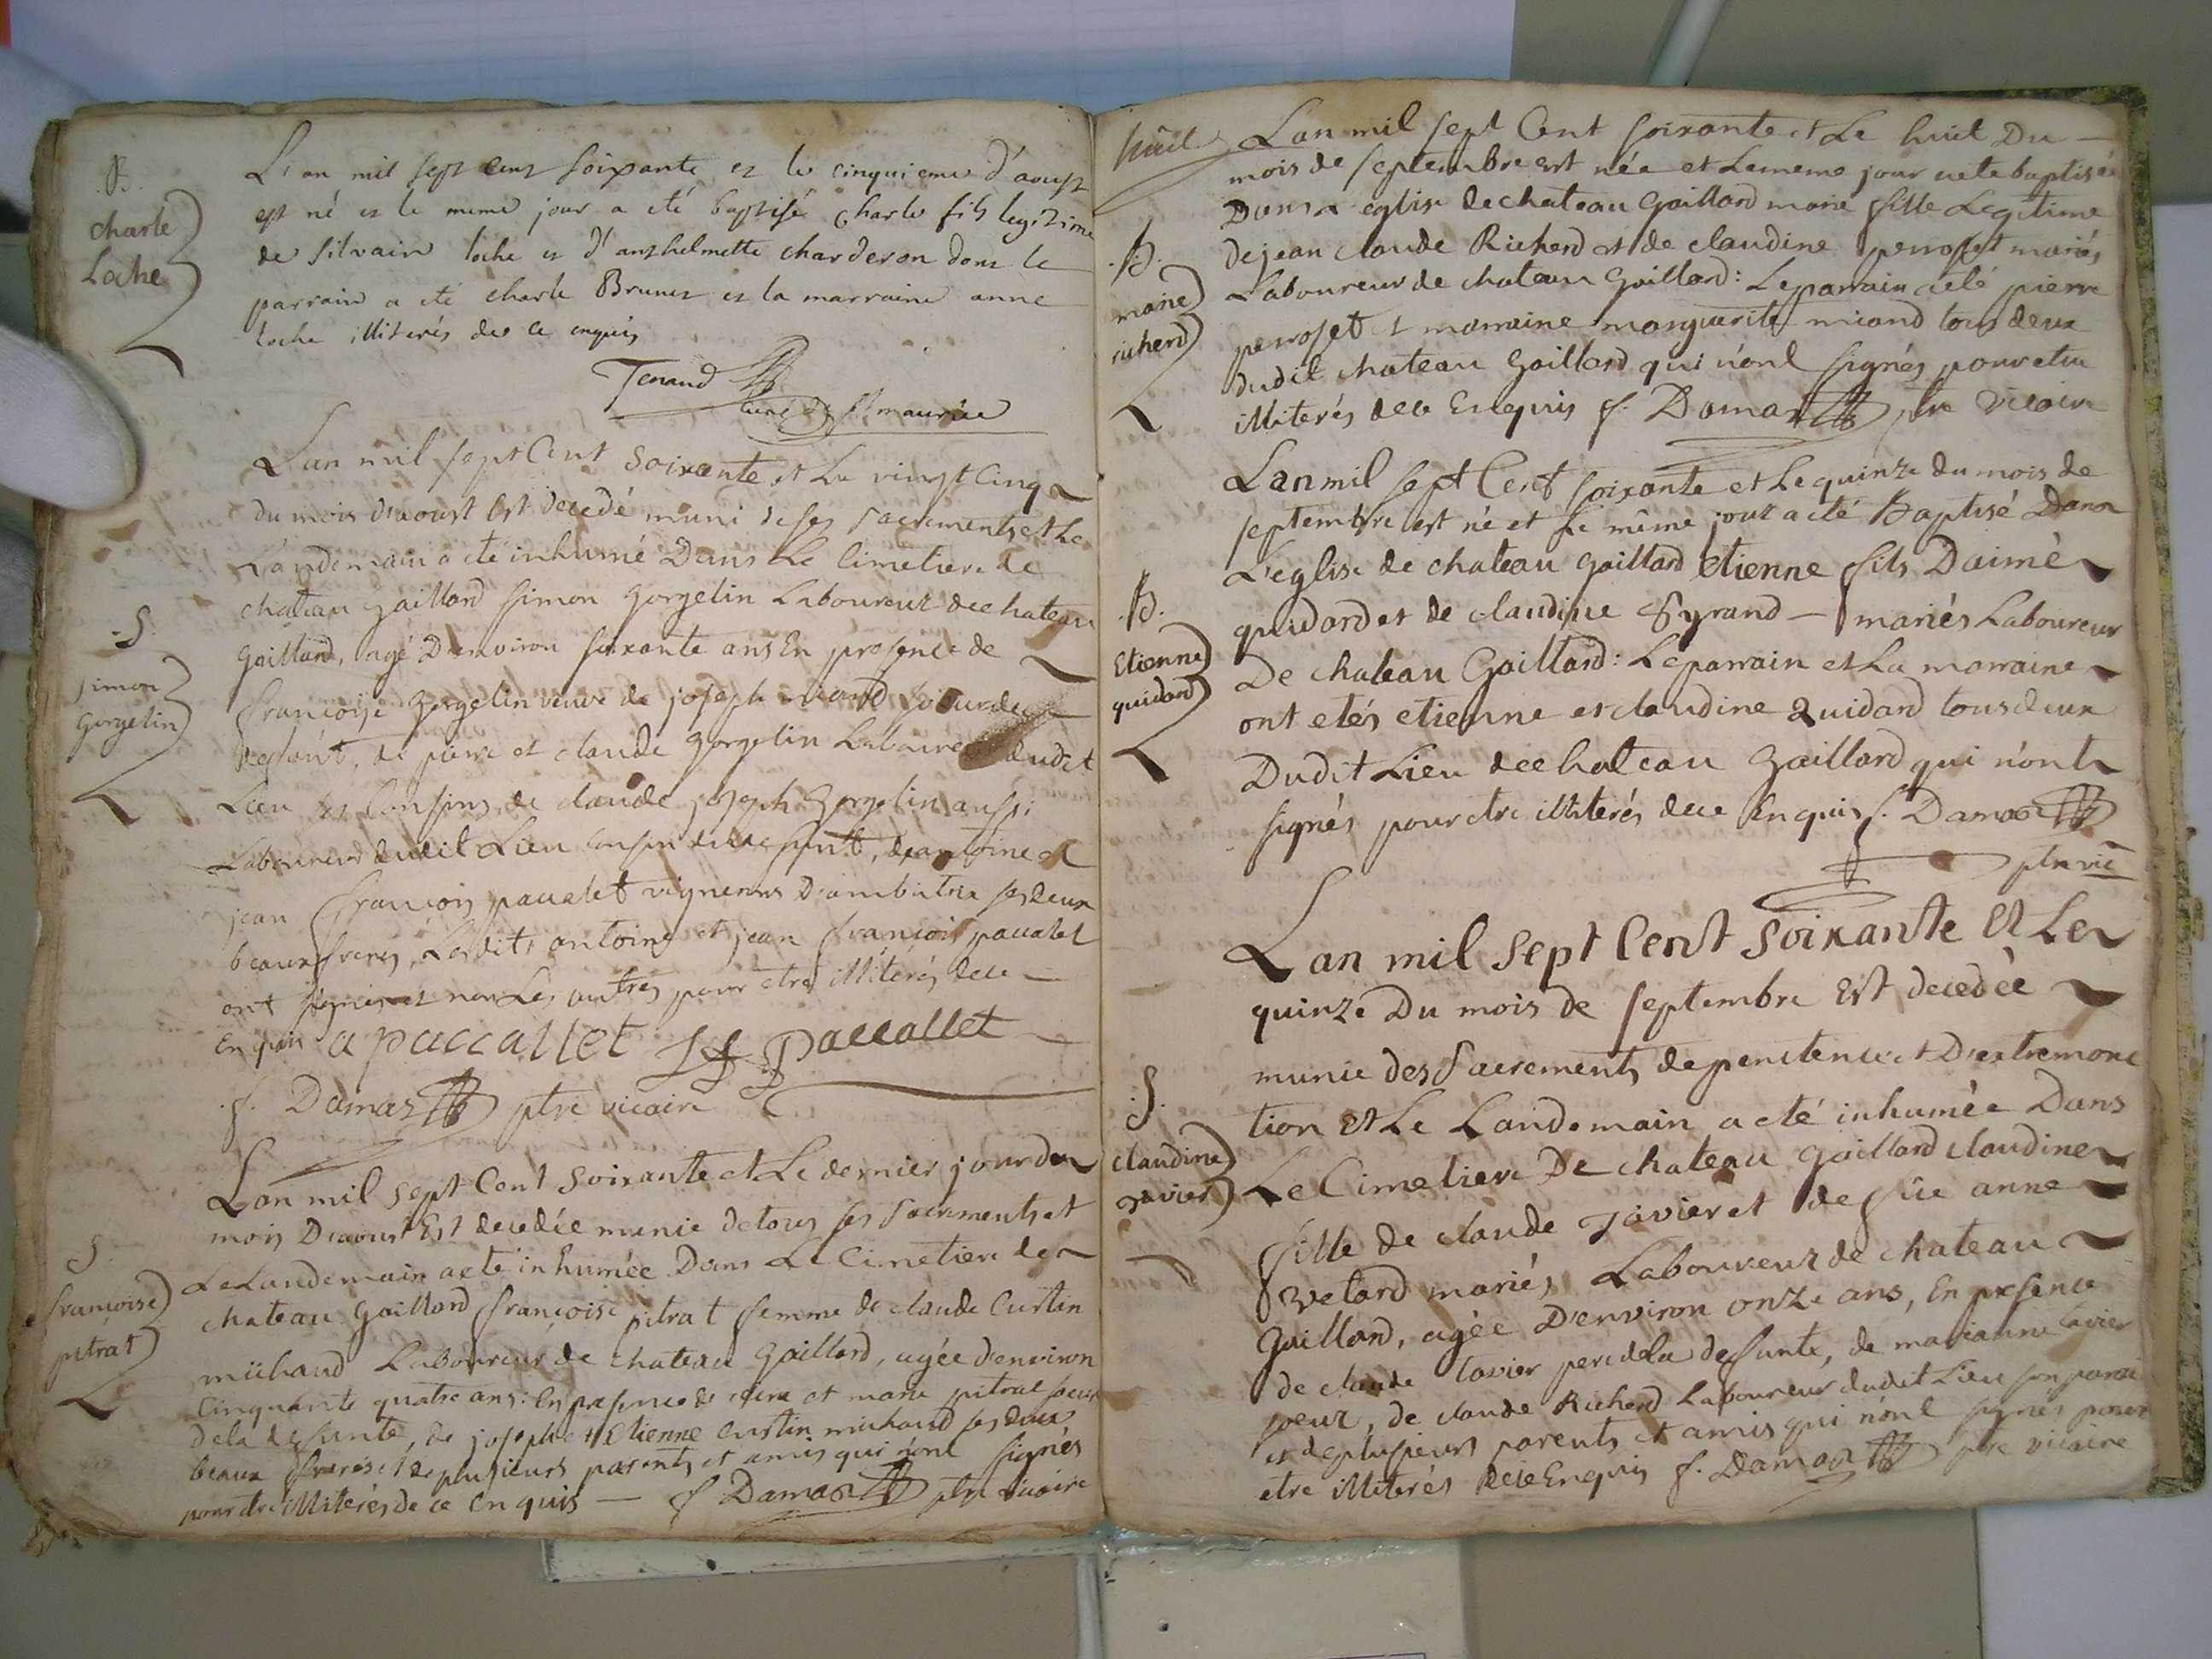 B.
charle
Loche
L'an mil sept cent soixante et le cinquieme d'aoust
est né et le meme jour a eté baptisé charle fils legitime
de silvain loche et d'anthelmette charderon dont le
parrain a eté charle Brunet et la marraine anne
loche illiterés de ce enquis
Tenand
curé de st maurice
S.
simon
Gorgelin
Lan mil sept Cent soixante et Le vingt Cinq
du mois d'aoust Est decedé muni de ses sacrements et Le
Landemain a eté inhumé Dans Le Cimetiere de
chateau Gaillard simon Gorgelin Laboureur de chateau
Gaillard, agé D'environ soixante ans En presence de
francoise Gorgelin veuve de joseph miand soeur de
deffunt, de pierre et claude Gorgelin Laboureurs dudit
Lieu ses Cousins, de claude joseph Gorgelin aussi
Laboureur dudit Lieu Cousin du deffunt, de antoine et
jean francois pacalet vignerons D'ambutrix ses deux
beaux freres, Lesdits antoine et jean francois pacalet
ont signés et non Les autres pour etre illiterés de ce
Enquis a paccallet Jf paccallet
f. Damas ptre vicaire
S.
francoise
pitrat
Lan mil sept Cent soixante et Le dernier jour du
mois D'aoust Est decedée munie de tous ses sacrements et
Le Landemain a eté inhumée Dans Le Cimetiere de
chateau Gaillard francoise pitrat femme de claude Curtin
michaud Laboureur de chateau Gaillard, agée d'environ
Cinquante quatre ans: En presence de claire et marie pitrat soeurs
de la deffunte, de joseph et Etienne Curtin michaud ses deux
beaux freres et de plusieurs parents et amis qui n'ont signés
pour etre illiterés de ce Enquis f Damas ptre vicaire
huit.
B.
marie
richerd
Lan mil sept Cent soixante et Le huit Du
mois de septembre est née et Le meme jour a eté baptisée
Dans L'eglise de chateau Gaillard marie fille Legitime
de jean claude Richerd et de claudine perroset mariés
Laboureur de chateau Gaillard: Le parrain a eté pierre
perroset et marraine marguerite miand tous deux
dudit chateau Gaillard qui n'ont signés pour etre
illiterés de ce Enquis f. Damas ptre vicaire
B.
Etienne
quidard
Lan mil sept Cent soixante et Le quinze du mois de
septembre est né et Le même jour a eté Baptisé Dans
L'eglise de chateau Gaillard Etienne fils D'aimé
quidard et de claudine Syrand mariés Laboureur
De chateau Gaillard: Le parrain et La marraine
ont etés etienne et claudine quidard tous deux
Dudit Lieu de chateau Gaillard qui n'ont
signés pour etre illiterés de ce Enquis f. Damas
ptre vic
S.
claudine
Tavier
Lan mil sept Cent soixante Et Le
quinze Du mois de septembre Est decedée
munie des sacrements de penitence et D'extremonc
tion Et Le Landemain a eté inhumée Dans
Le Cimetiere De chateau Gaillard claudine
fille de claude Tavier et de fûe anne
Vetard mariés Laboureur de chateau
Gaillard, agée D'environ onze ans, En presence
de claude tavier pere de la deffunte, de marianne tavier
soeur, de claude Richerd Laboureur dudit Lieu son parent
et de plusieurs parents et amis qui n'ont signés pour
etre illiterés de ce Enquis f. Damas ptre vicaire